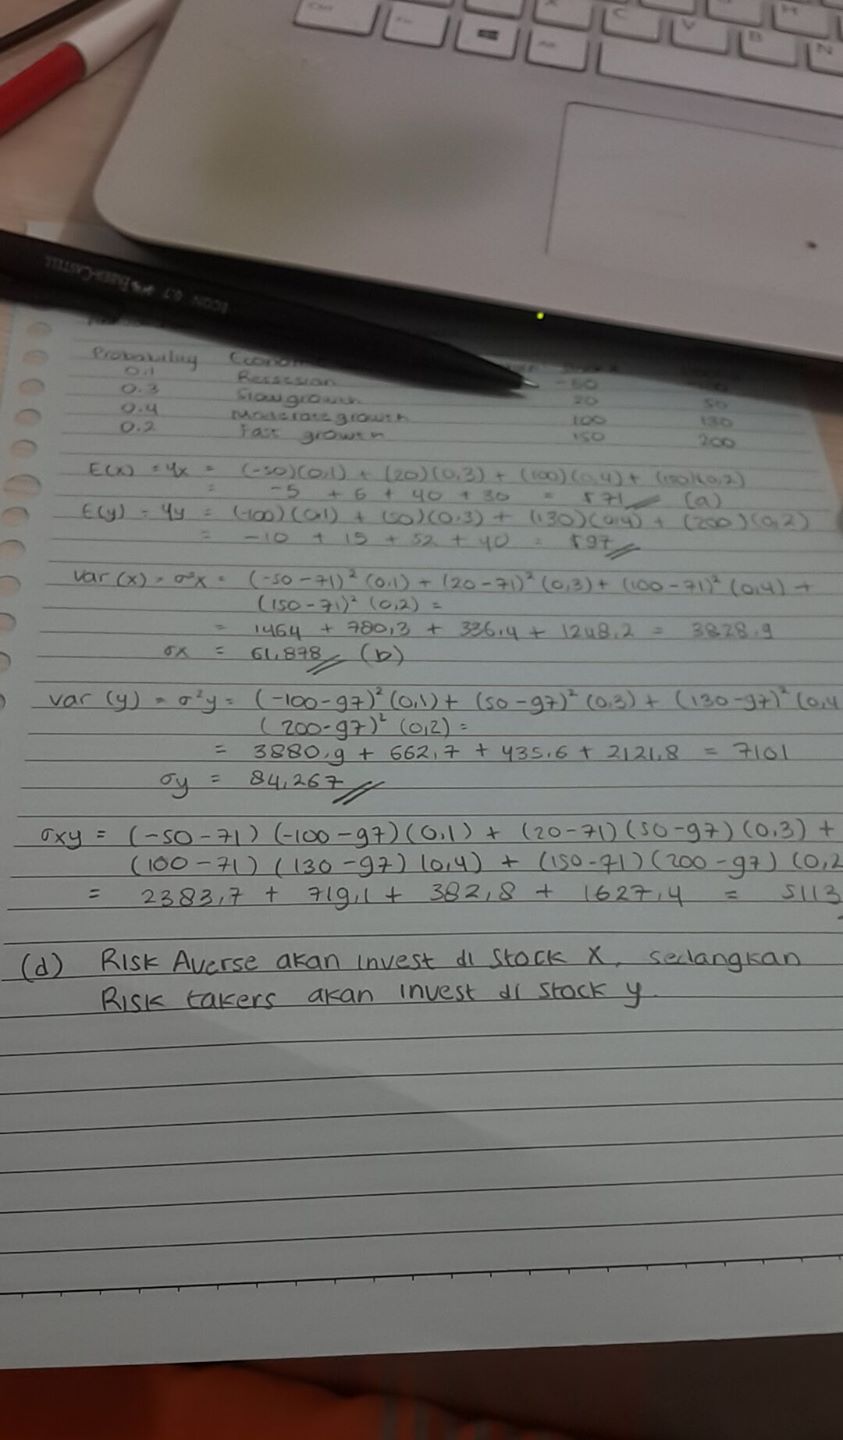 Ctrl Fn Alt X C V B N H
FABER-CASTELL ECON 0.7
Probability Econo
0.1 Recession -50
0.3 Slow growth 20 50
0.4 Moderate growth 100 130
0.2 Fast growth 150 200
E(x) = μx = (-50)(0,1) + (20)(0,3) + (100)(0,4) + (150)(0,2)
= -5 + 6 + 40 + 30 = $71 (a)
E(y) = μy = (-100)(0,1) + (50)(0,3) + (130)(0,4) + (200)(0,2)
= -10 + 15 + 52 + 40 = $97
Var (x) = σ²x = (-50-71)² (0,1) + (20-71)² (0,3) + (100-71)² (0,4) +
(150-71)² (0,2) =
= 1464 + 780,3 + 336,4 + 1248,2 = 3828,9
σx = 61,878 (b)
Var (y) = σ²y = (-100-97)² (0,1) + (50-97)² (0,3) + (130-97)² (0,4
(200-97)² (0,2) =
= 3880,9 + 662,7 + 435,6 + 2121,8 = 7101
σy = 84,267
σxy = (-50-71) (-100-97) (0,1) + (20-71) (50-97) (0,3) +
(100-71) (130-97) (0,4) + (150-71) (200-97) (0,2
= 2383,7 + 719,1 + 382,8 + 1627,4 = 5113
(d) Risk Averse akan invest di stock X, sedangkan
Risk takers akan invest di stock y.